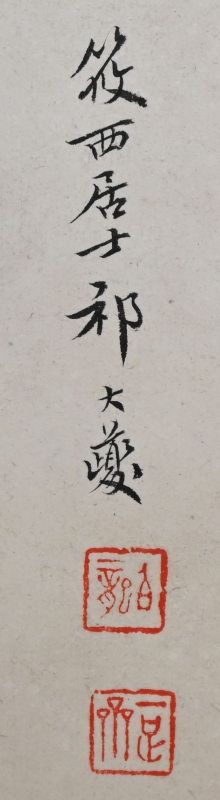 筱西居士祁大夔